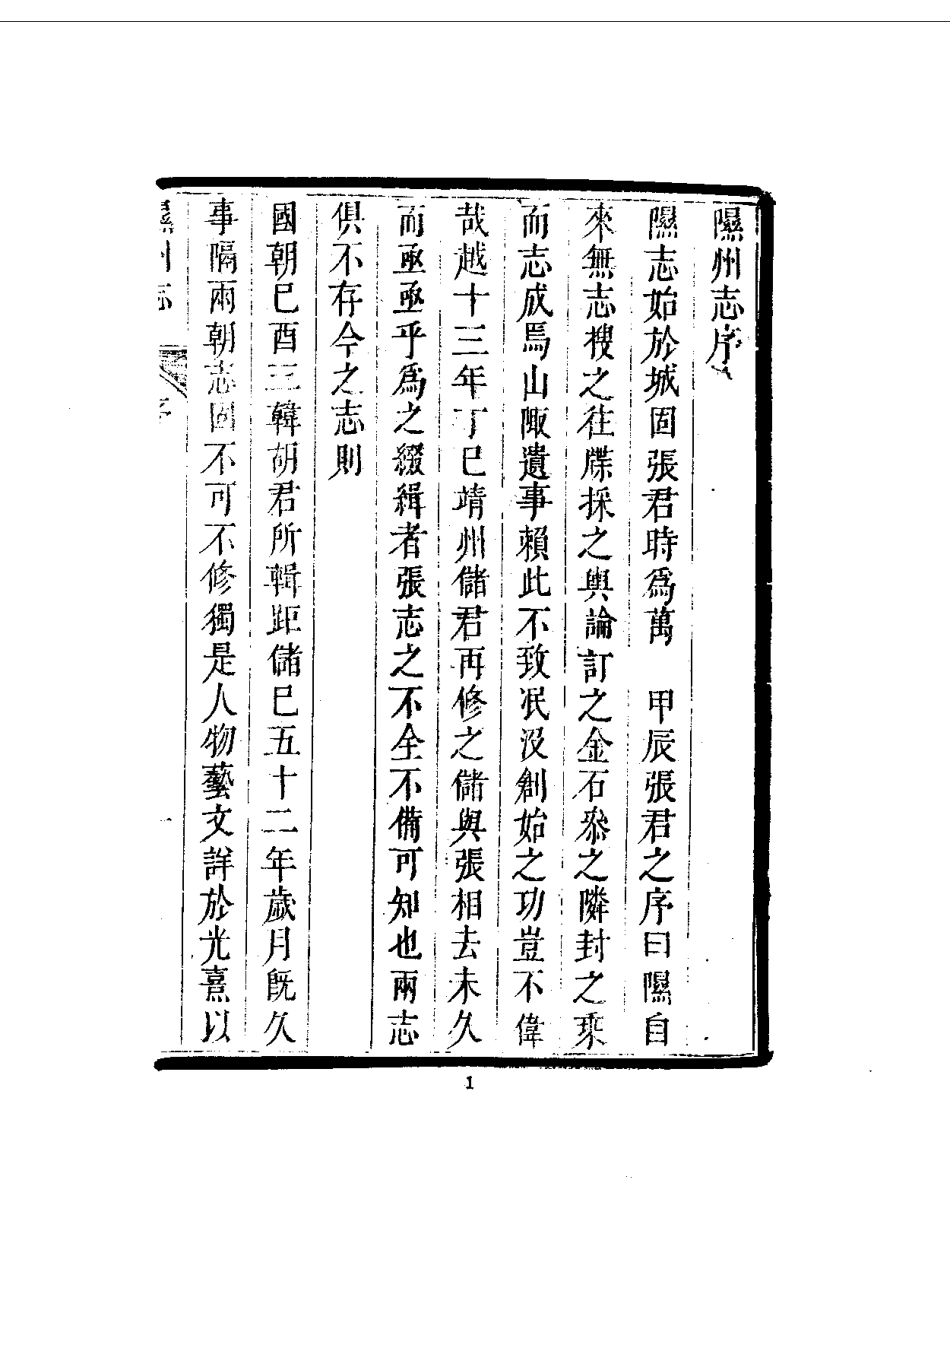 隰州志序
隰志始於城固張君時爲萬　甲辰張君之序曰隰自
來無志搜之往牒採之輿論訂之金石叅之隣封之乘
而志成焉山陬遺事賴此不致泯没創始之功豈不偉
哉越十三年丁巳靖州儲君再修之儲與張相去未久
而亟亟乎爲之綴緝者張志之不全不備可知也兩志
俱不存今之志則
國朝巳酉三韓胡君所輯距儲巳五十二年歲月旣久
事隔兩朝志固不可不修獨是人物藝文詳於光熹以
隰州志
序
一
1